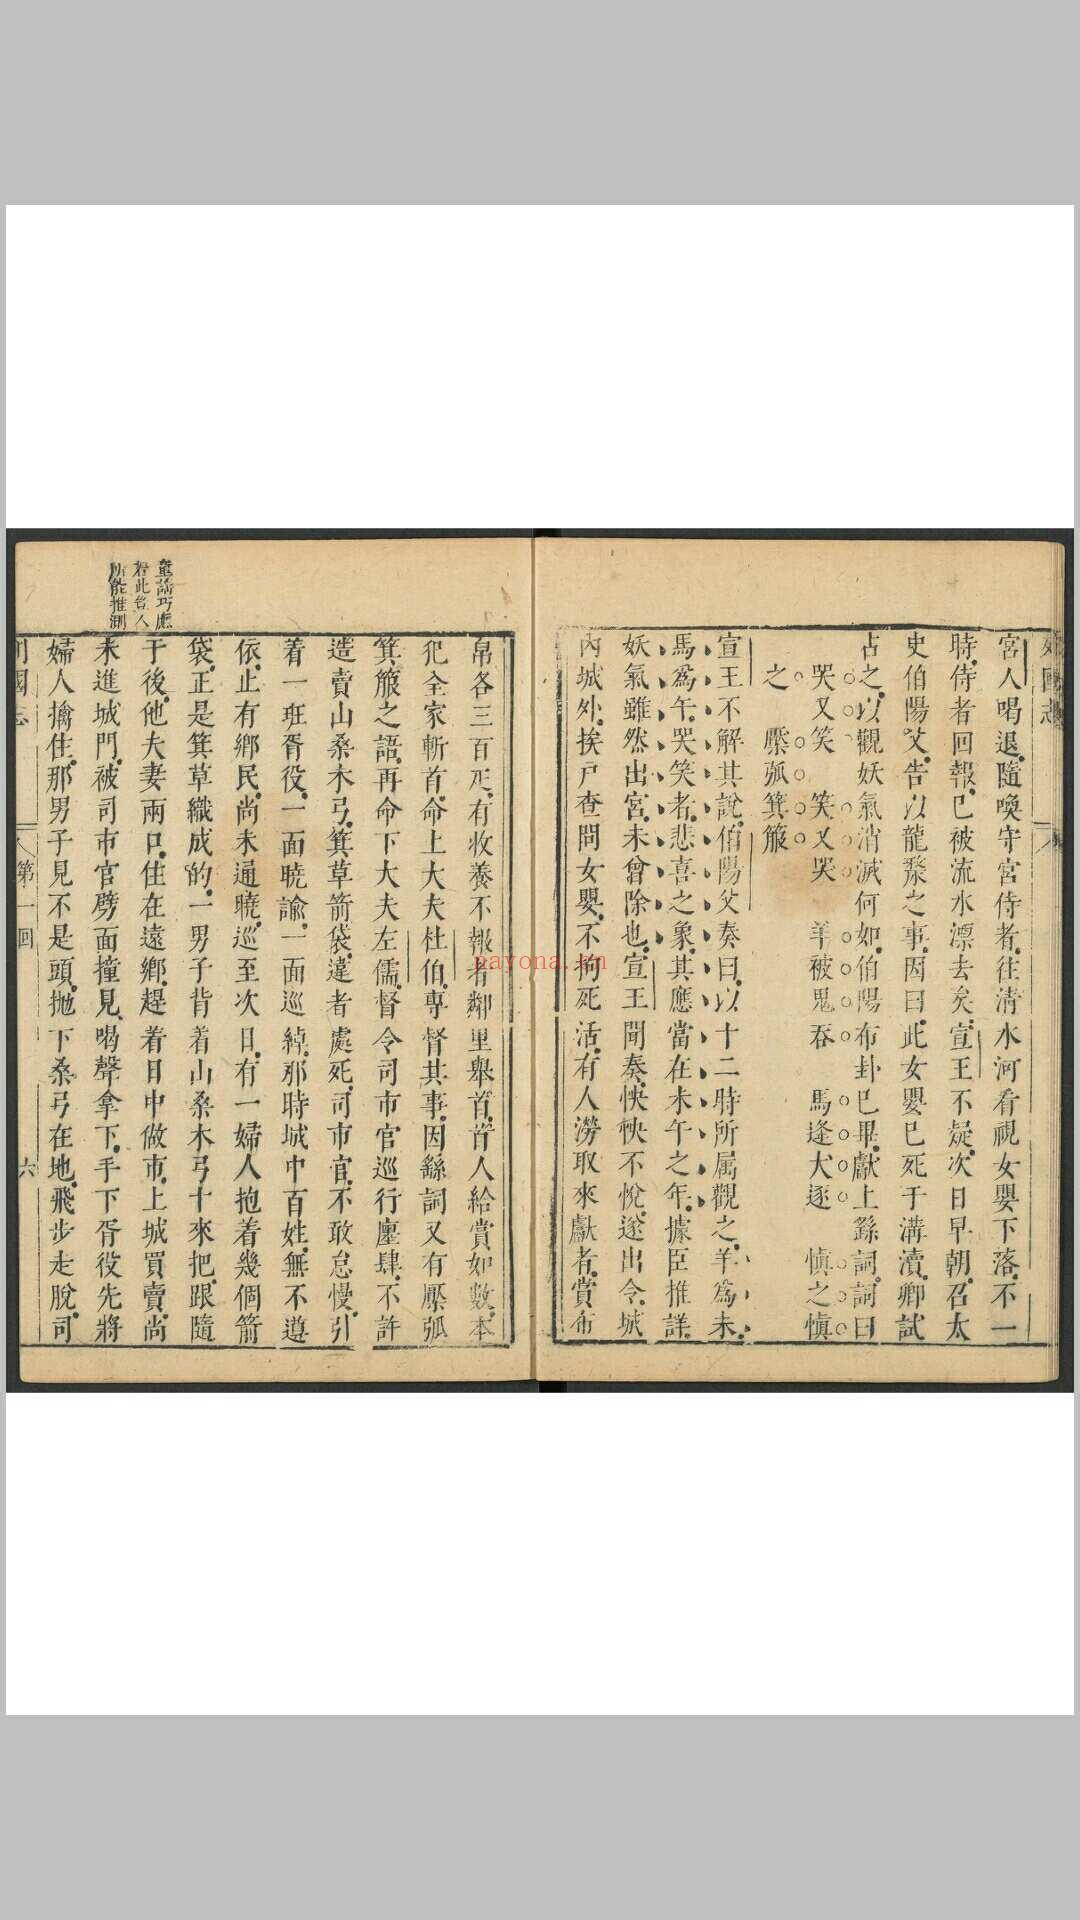 宮人喝退隨喚守宮侍者往清水河看視女嬰下落不一
時侍者回報已被流水漂去矣宣王不疑次日早朝召太
史伯陽父告以龍漦之事因曰此女嬰已死于溝瀆卿試
占之以觀妖氣消滅何如伯陽布卦已畢獻上繇詞詞曰
哭又笑 笑又哭 羊被鬼吞 馬逢犬逐 慎之慎
之 檿弧箕箙
宣王不解其說伯陽父奏曰以十二時所属觀之羊為未
馬為午哭笑者悲喜之象其應當在未午之年據臣推詳
妖氣雖然出宮未曾除也宣王聞奏怏怏不悅遂出令城
內城外挨戶查問女嬰不拘死活有人澇取來獻者賞布
帛各三百疋有收養不報者鄰里舉首首人給賞如數本
犯全家斬首命上大夫杜伯專督其事因繇詞又有檿弧
箕箙之語再命下大夫左儒督令司市官巡行廛肆不許
造賣山桑木弓箕草箭袋違者處死司市官不敢怠慢引
着一班胥役一面曉諭一面巡綽那時城中百姓無不遵
依止有鄉民尚未通曉巡至次日有一婦人抱着幾個箭
袋正是箕草織成的一男子背着山桑木弓十來把跟隨
于後他夫妻兩口住在遠鄉趕着日中做市上城買賣尚
未進城門被司市官劈面撞見喝聲拿下手下胥役先將
婦人擒住那男子見不是頭抛下桑弓在地飛步走脫司
童謠巧應
若此豈人
所能推測
列國志 第一回 六
nayona.cn